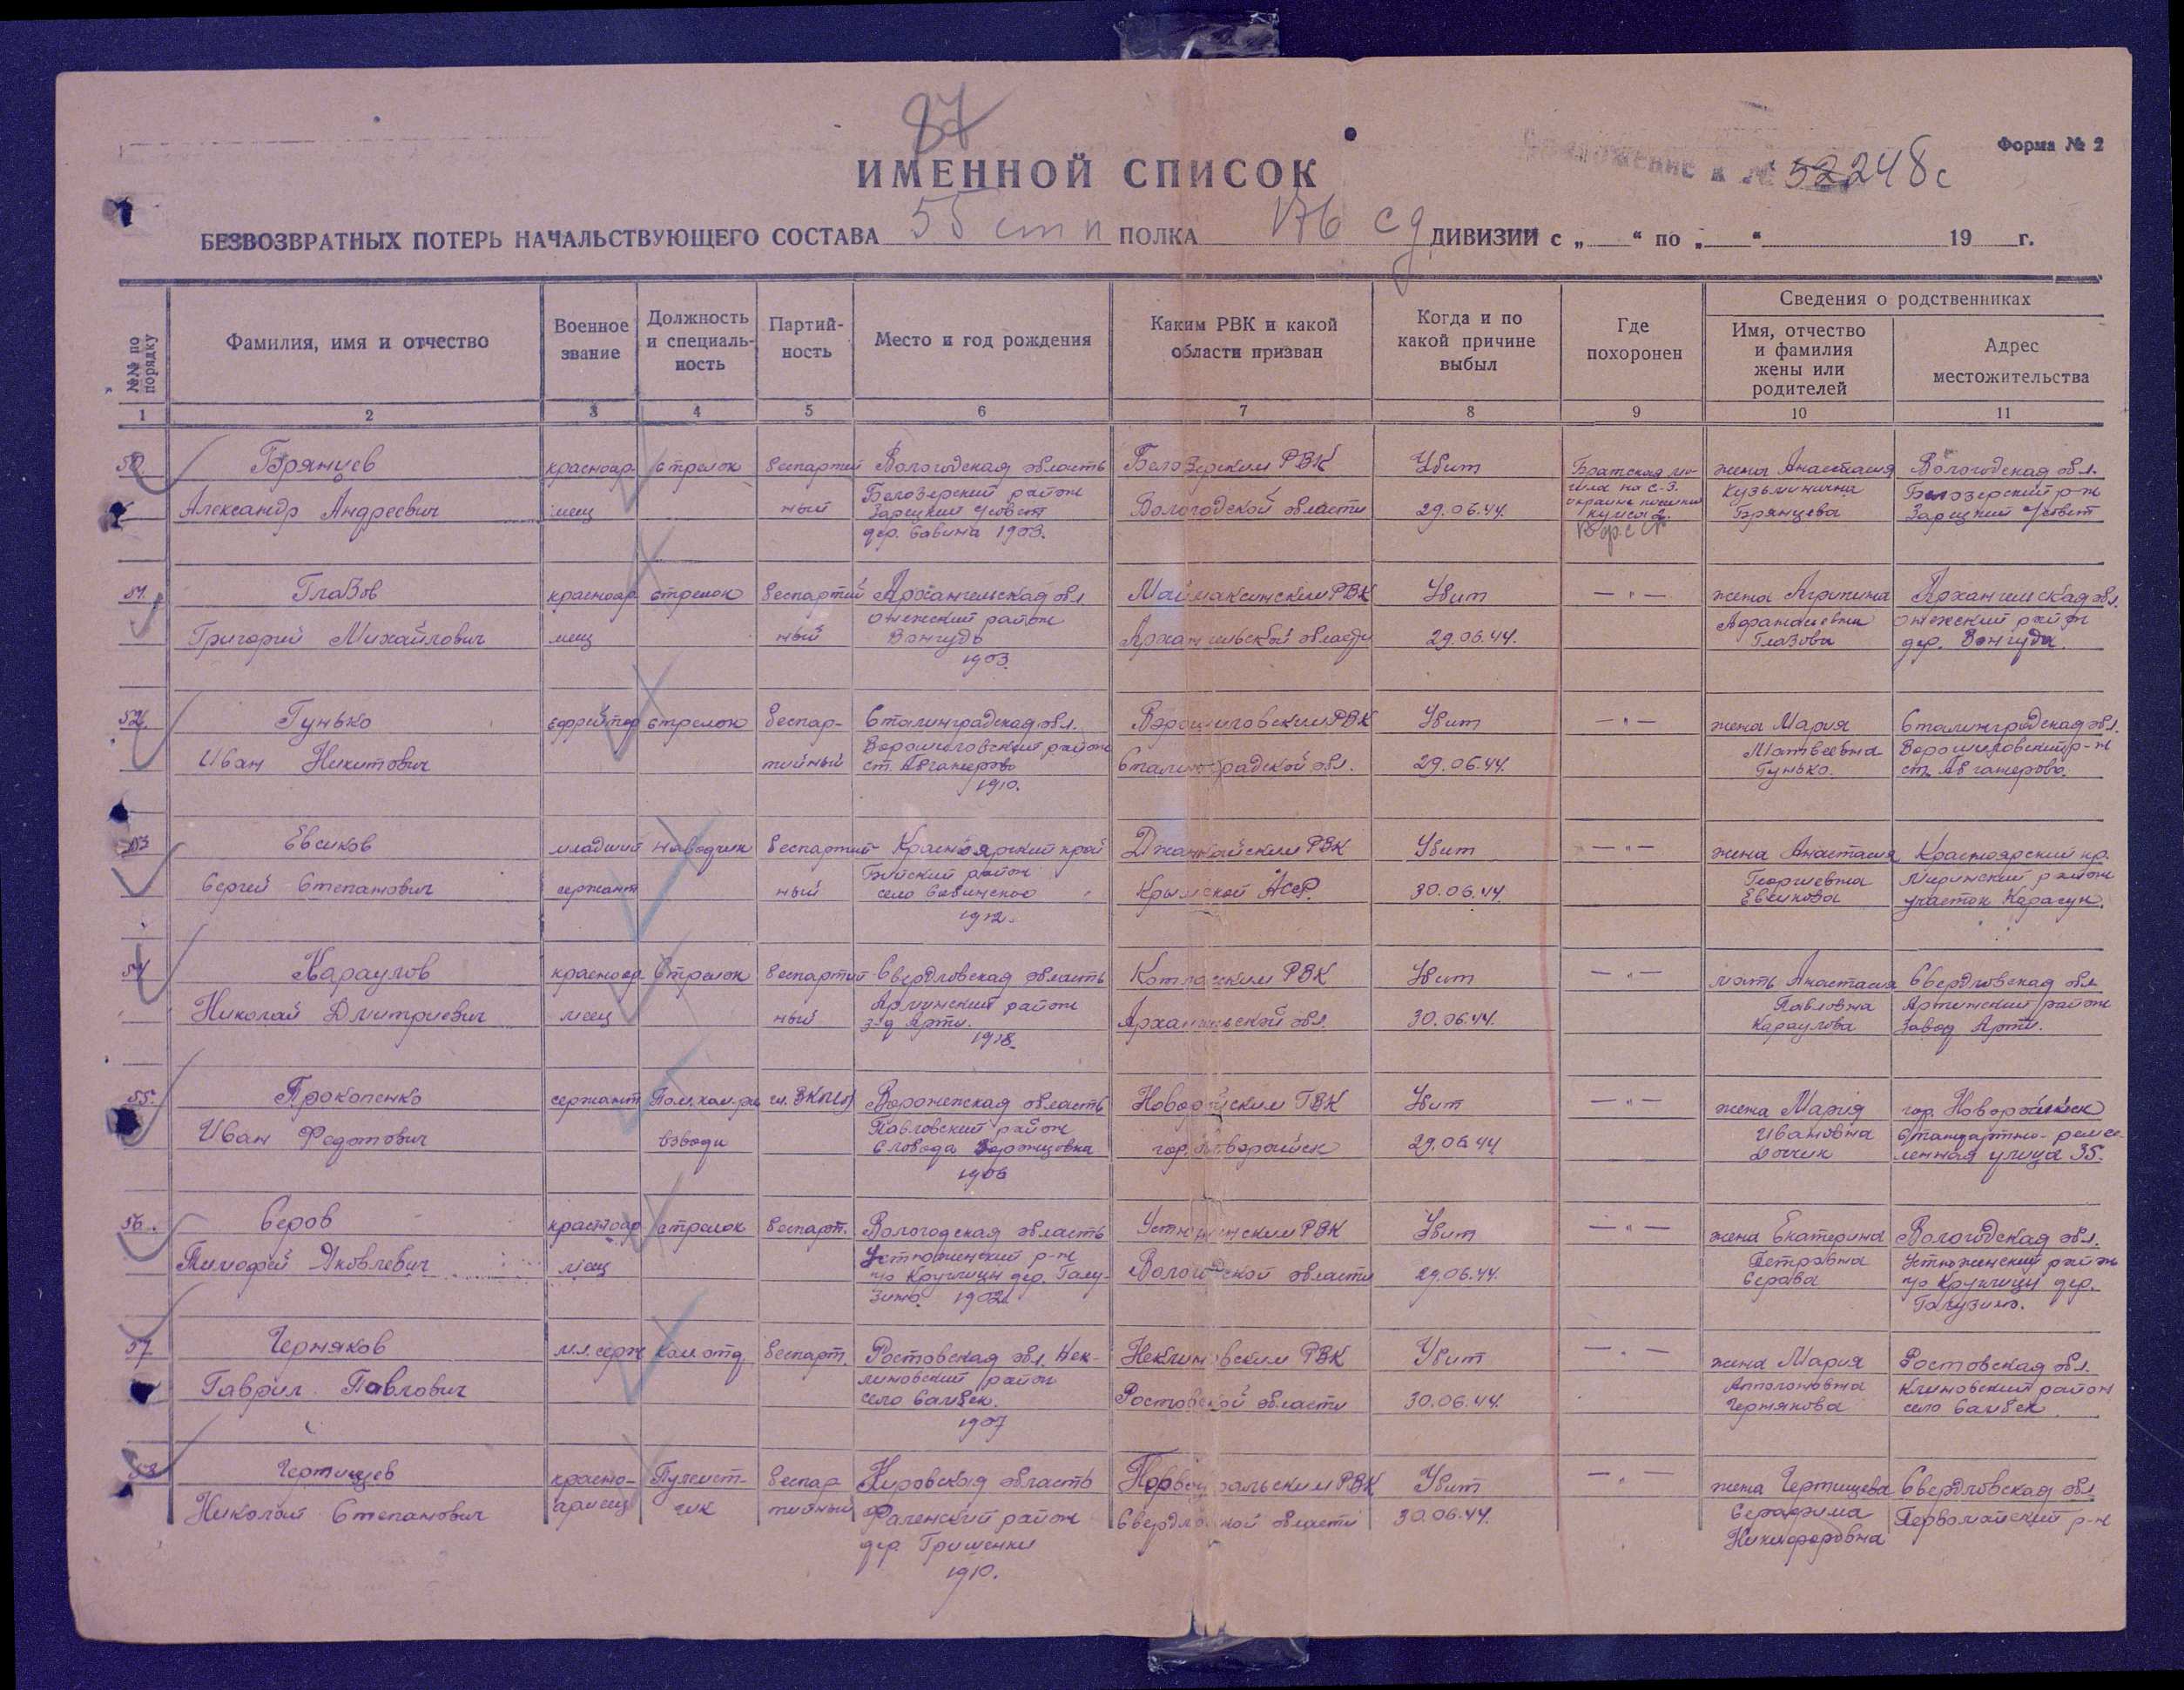 87
Форма № 2
Приложение к № 52248с
ИМЕННОЙ СПИСОК
БЕЗВОЗВРАТНЫХ ПОТЕРЬ НАЧАЛЬСТВУЮЩЕГО СОСТАВА 55 стп ПОЛКА 176 сд ДИВИЗИИ с „ “ по „ “ 19 г.
№№ по порядку
Фамилия, имя и отчество
Военное звание
Должность и специаль-ность
Партий-ность
Место и год рождения
Каким РВК и какой области призван
Когда и по какой причине выбыл
Где похоронен
Сведения о родственниках
Имя, отчество и фамилия жены или родителей
Адрес местожительства
1 2 3 4 5 6 7 8 9 10 11
50. Брянцев красноар- стрелок беспартий Вологодская область Белозерским РВК Убит Братская мо- жена Анастасия Вологодская обл.
Белозерский район гила на с-з. Кузьминична Белозерский р-н
Александр Андреевич меец ный Зарецкий с/совет Вологодской области 29.06.44. окраине Брянцева Зарецкий с/совет
дер. Савина 1903.
51. Глазов красноар стрелок беспартий Архангельская обл Маймаксинским РВК Убит — „ — жена Агрипина Архангельская обл.
онежский район Афанасьевна онежский район
Григорий Михайлович меец ный Вонгуда Архангельской области 29.06.44. Глазова дер. Вонгуда.
1903.
52. Гунько ефрейтор стрелок беспар- Сталинградская обл. Ворошиловским РВК Убит — „ — жена Мария Сталинградская обл.
Ворошиловский район Матвеевна Ворошиловский р-н
Иван Никитович тийный ст. Абганерово Сталинградской обл. 29.06.44. Гунько. ст. Абганерово.
1910.
53 Евсиков младший наводчик беспартий Красноярский край Джанкойским РВК Убит — „ — жена Анастасия Красноярский кр.
район Георгиевна район
Сергей Степанович сержант ный село Савинское Крымской АССР. 30.06.44. Евсикова участок Карагун.
1912.
54 Караулов красноар Стрелок беспартий Свердловская область Котласским РВК Убит — „ — мать Анастасия Свердловская обл
Артинский район Павловна Артинский район
Николай Дмитриевич меец ный з-д Арти. Архангельской обл. 30.06.44. Караулова завод Арти.
1918.
55. Прокопенко сержант Пом. ком. чл. ВКП(б) Воронежская область Новоросийским ГВК Убит — „ — жена Мария гор. Новоросийск
Павловский район Ивановна Стандартно- ремес-
Иван Федотович взвода Слобода гор. Новоросийск 29.06.44 ленная улица 35.
1906
56. Серов красноар стрелок беспарт. Вологодская область Устюженским РВК Убит — „ — жена Екатерина Вологодская обл.
Устюженский р-н Петровна Устюженский район
Тимофей Яковлевич меец с/с Круглицы дер. Галу- Вологодской области 29.06.44. Серова с/с Круглицы дер.
зино. 1902. Галузино.
57. Черняков мл. серж ком. отд. беспарт. Ростовская обл. Нек- Неклиновским РВК Убит — „ — жена Мария Ростовская обл.
линовский район Аполоновна Клиновский район
Гаврил Павлович село Самбек. Ростовской области 30.06.44. Чернякова село Самбек
1907
58 Чертищев красно- Пулемет- беспар Кировская область Первоуральским РВК Убит — „ — жена Чертищева Свердловская обл
Николай Степанович армеец чик тийный Фаленский район Свердловской области 30.06.44. Серафима Первомайский р-н
дер. Гришенки Никифоровна
1910.